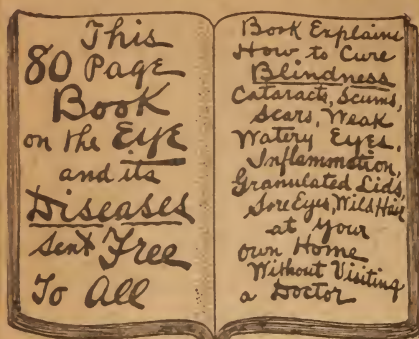 This
80 Page
Book
on the Eye
and its
Diseases
sent Free
To All
Book Explains
How to Cure
Blindness
Cataracts, Scums,
Scars, Weak
Watery Eyes,
Inflammation,
Granulated Lids,
Sore Eyes, Wild Hair
at your
own Home
Without Visiting
a Doctor